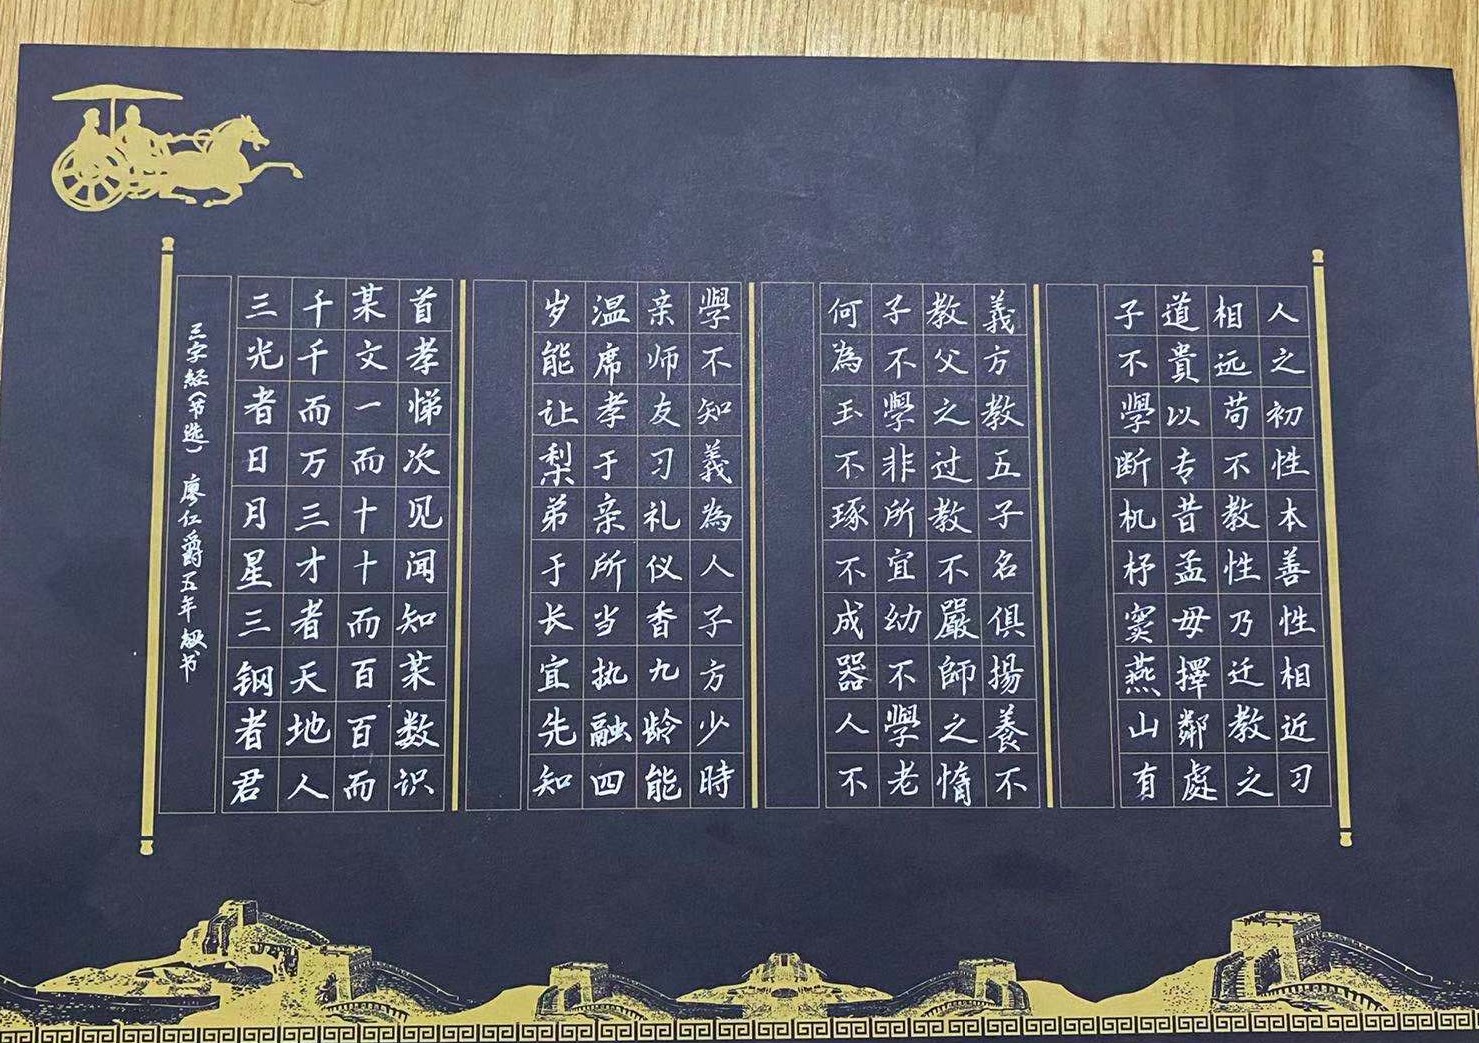 人之初性本善性相近习
相远苟不教性乃迁教之
道貴以专昔孟母擇鄰處
子不學断机杼窦燕山有
義方教五子名俱揚養不
教父之过教不嚴師之惰
子不學非所宜幼不學老
何為玉不琢不成器人不
學不知義為人子方少時
亲师友习礼仪香九龄能
温席孝于亲所当执融四
岁能让梨弟于长宜先知
首孝悌次见闻知某数识
某文一而十十而百百而
千千而万三才者天地人
三光者日月星三钢者君
三字经(节选) 廖仁爵五年级书